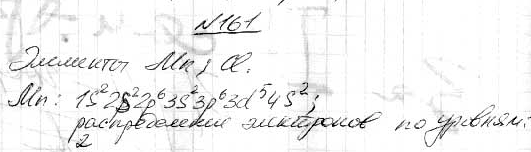 №161
Элементы Mn; Cl.
Mn: 1s²2s²2p⁶3s²3p⁶3d⁵4s²;
распределение электронов по уровням:
2